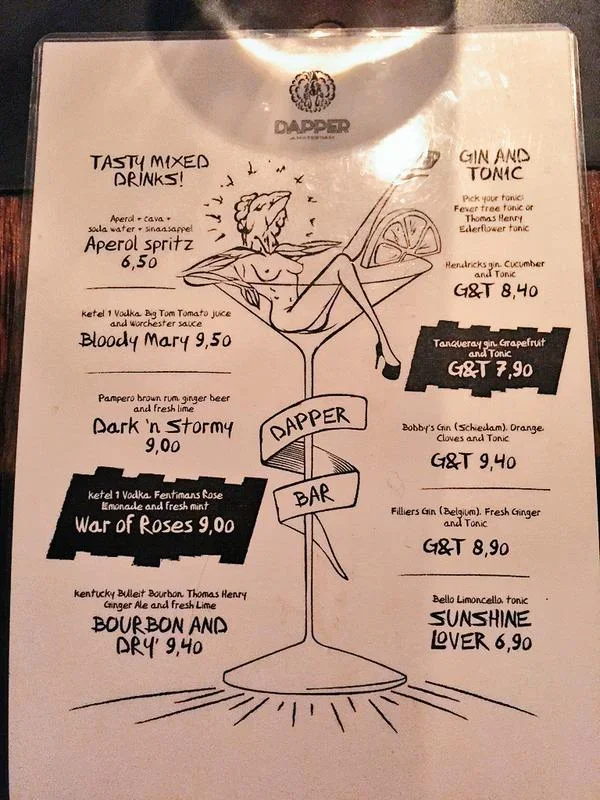 DAPPER
AMSTERDAM
TASTY MIXED
DRINKS!
Aperol + cava +
soda water + sinaasappel
Aperol spritz
6,50
Ketel 1 Vodka. Big Tom Tomato juice
and worchester sauce
Bloody Mary 9,50
Pampero brown rum. ginger beer
and fresh lime
Dark 'n Stormy
9,00
Ketel 1 Vodka. Fentimans Rose
lemonade and fresh mint
War of Roses 9,00
Kentucky Bulleit Bourbon. Thomas Henry
Ginger Ale and fresh Lime
BOURBON AND
DRY' 9,40
DAPPER
BAR
GIN AND
TONIC
Pick your tonic:
Fever tree tonic or
Thomas Henry
Elderflower tonic
Hendricks gin. Cucumber
and Tonic
G&T 8,40
Tanqueray gin. Grapefruit
and Tonic
G&T 7,90
Bobby's Gin (Schiedam). Orange.
Cloves and Tonic
G&T 9,40
Filliers Gin (Belgium). Fresh Ginger
and Tonic
G&T 8,90
Bello Limoncello. tonic
SUNSHINE
LOVER 6,90